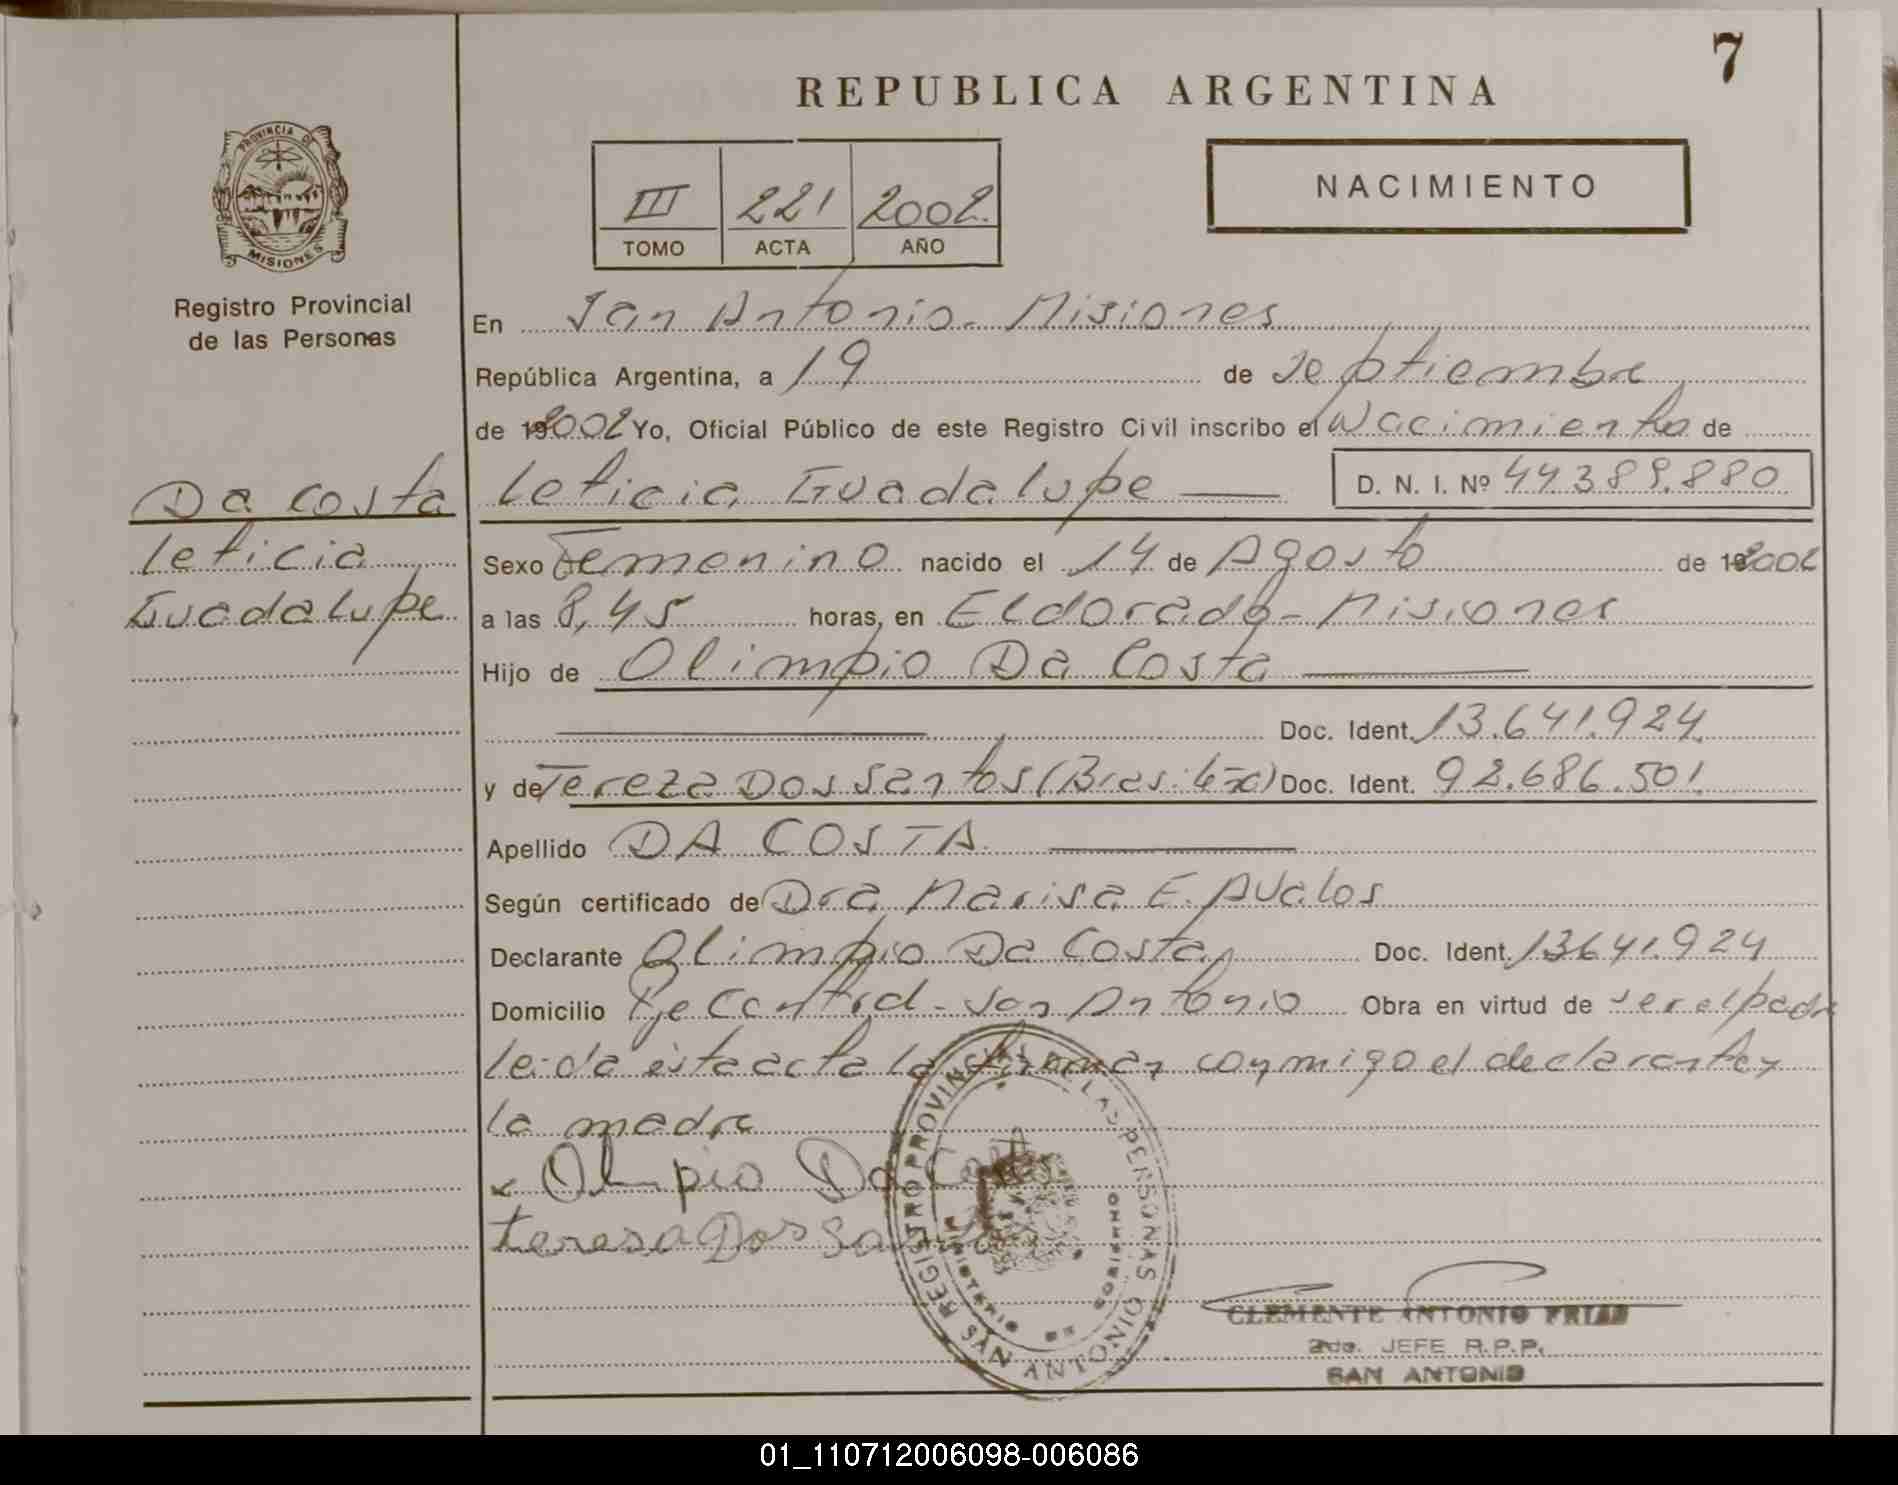 7
REPUBLICA ARGENTINA
PROVINCIA DE MISIONES
Registro Provincial
de las Personas
III 221 2002.
TOMO ACTA AÑO
NACIMIENTO
En San Antonio - Misiones
República Argentina, a 19 de septiembre
de 2002 Yo, Oficial Público de este Registro Civil inscribo el Nacimiento de
Leticia Guadalupe D. N. I. Nº 44.389.880
Da Costa
Leticia
Guadalupe
Sexo Femenino nacido el 14 de Agosto de 2002
a las 8,45 horas, en Eldorado - Misiones
Hijo de Olimpio Da Costa
Doc. Ident. 13.641.924
y de Tereza Dos Santos (Brasileña) Doc. Ident. 92.686.501
Apellido DA COSTA
Según certificado de Dra Marisa E. Avalos
Declarante Olimpio Da Costa Doc. Ident. 13641.924
Domicilio Pje Central - San Antonio Obra en virtud de ser el padre
leida ésta acta la firman conmigo el declarante y
la madre
x Olimpio Da Costa
teresa Dos Santos
REGISTRO PROVINCIAL DE LAS PERSONAS
SAN ANTONIO
MINISTERIO DE GOBIERNO
CLEMENTE ANTONIO FRIAS
2do. JEFE R.P.P.
SAN ANTONIO
01_110712006098-006086